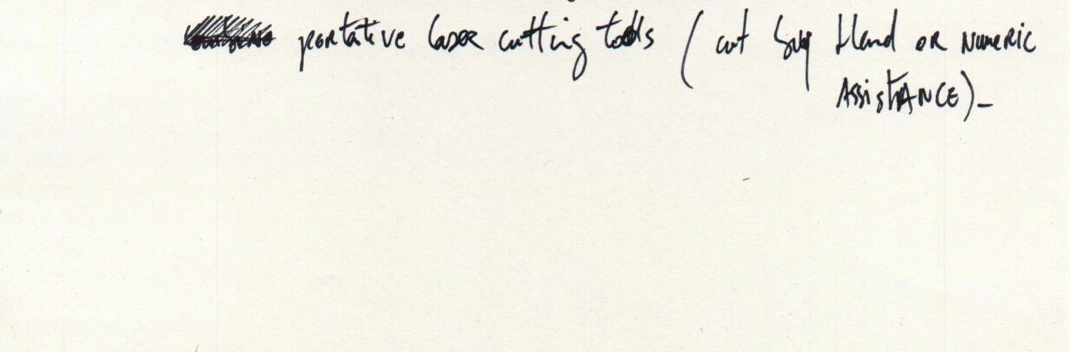 portative laser cutting tools ( cut by Hand OR NUMERIC
ASSISTANCE)_